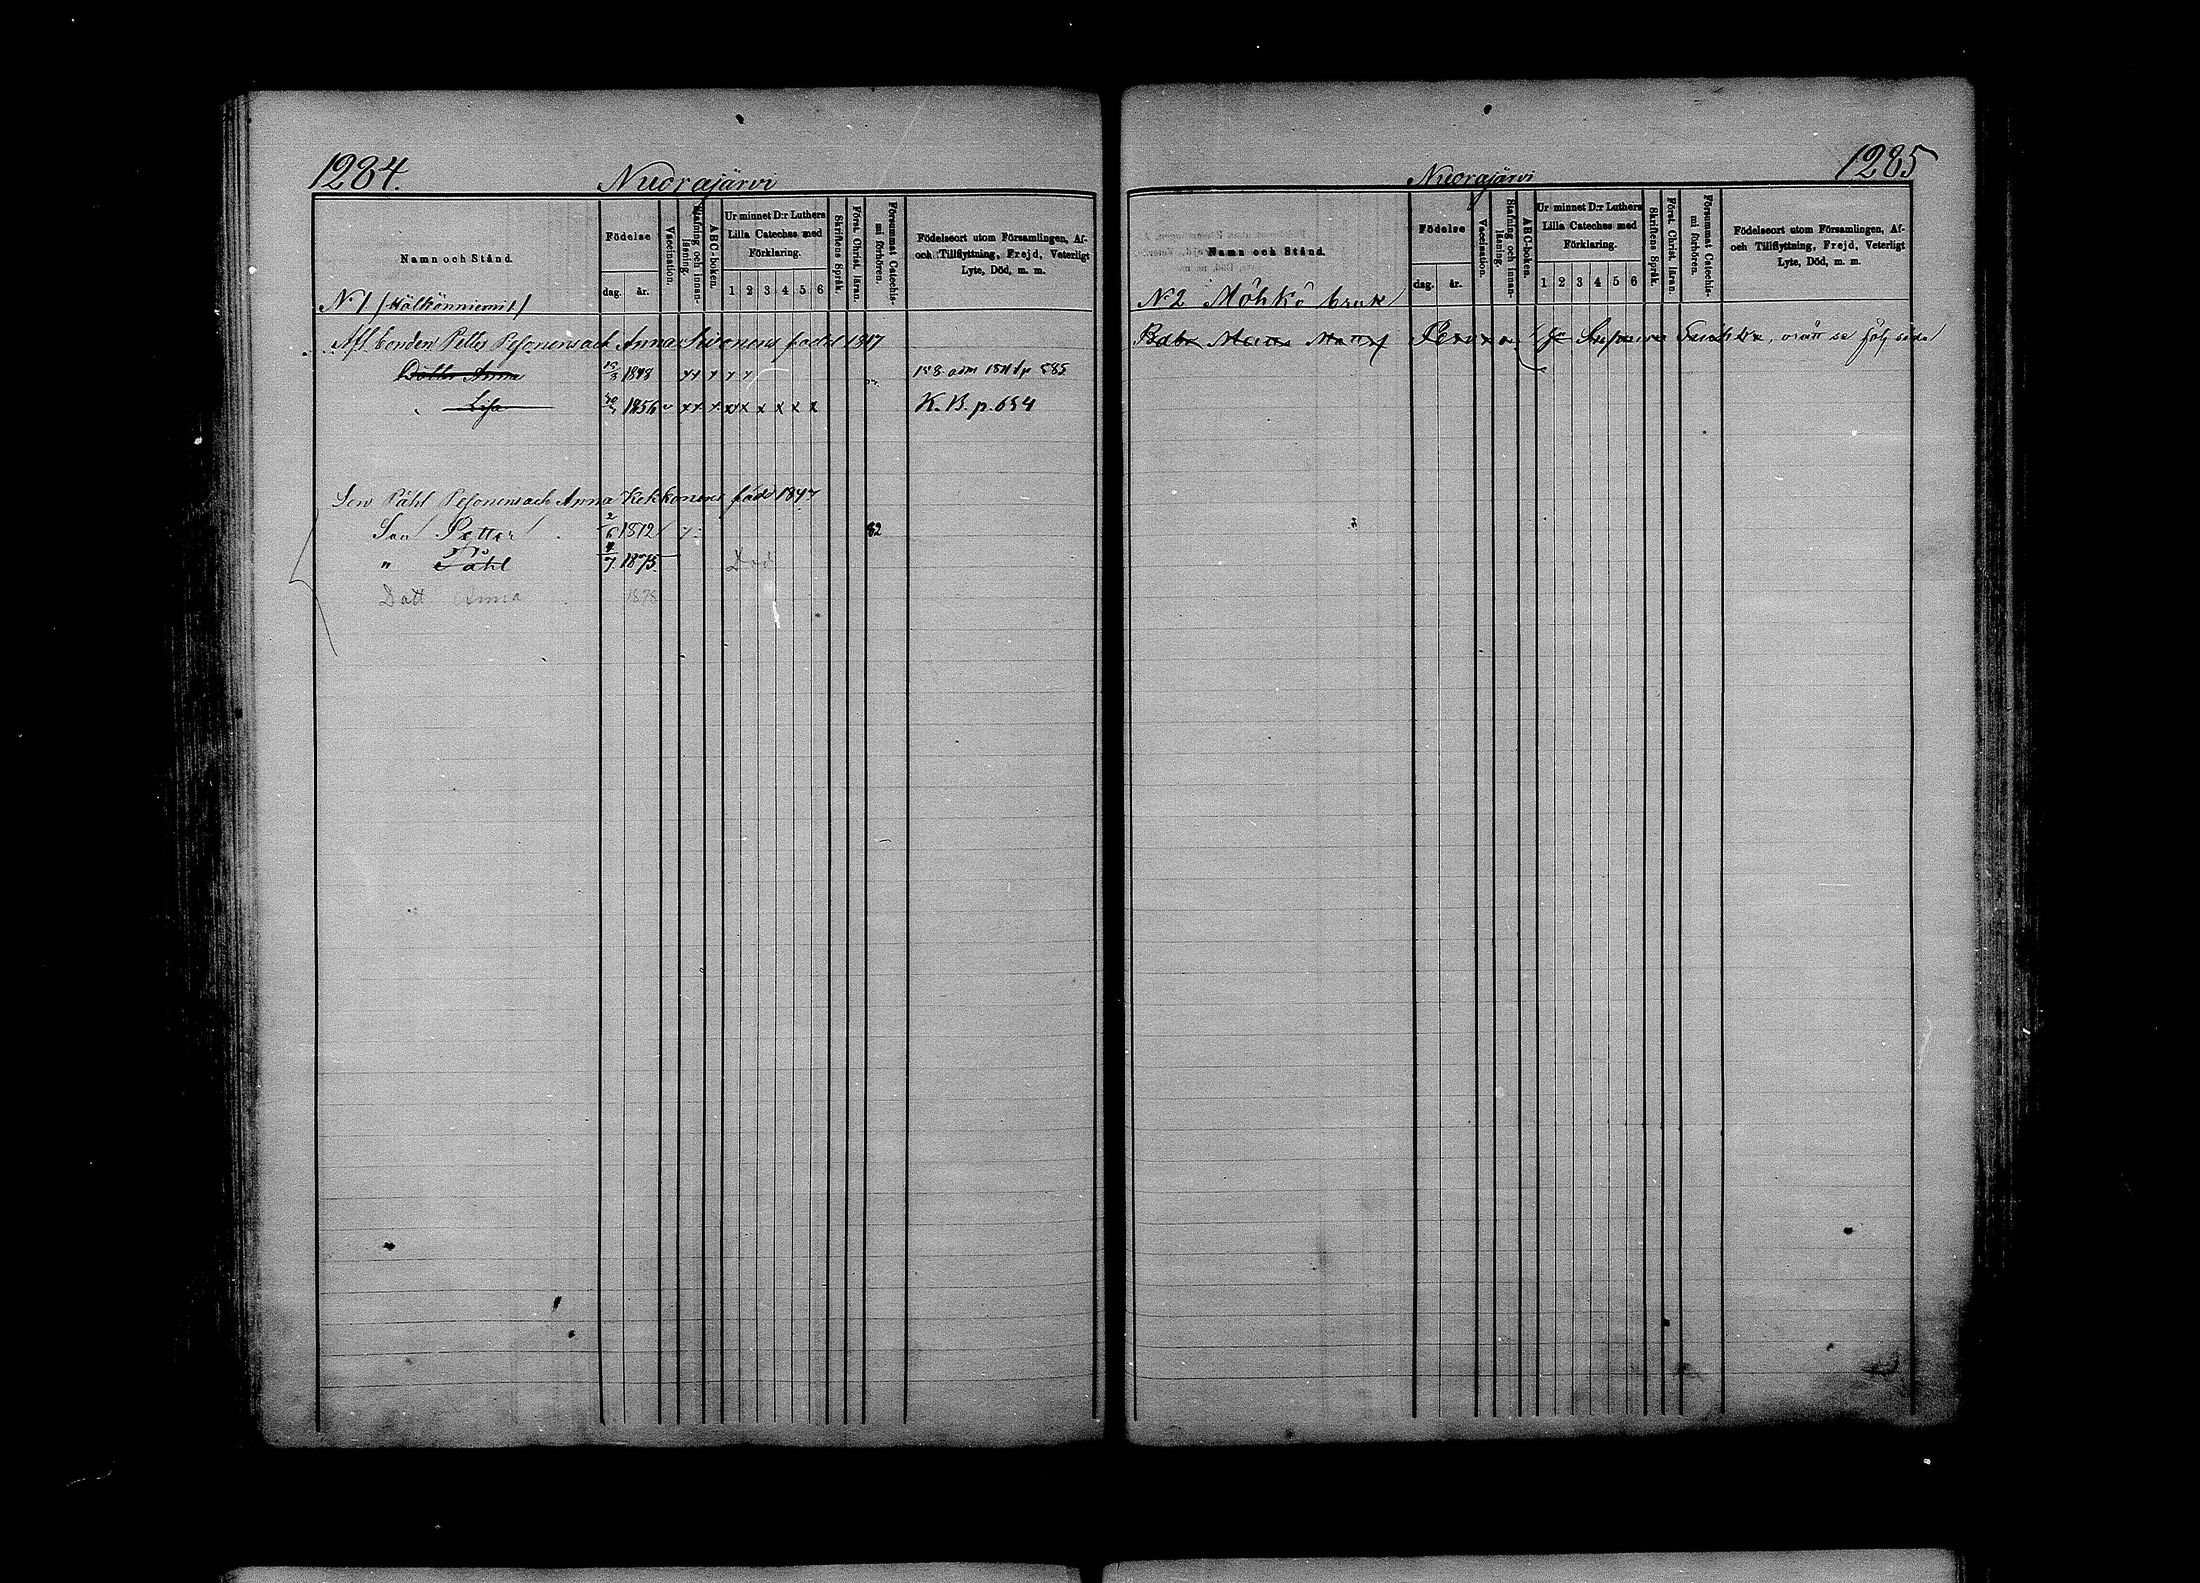 1284.
Nuorajärvi
Namn och Stånd.
Födelse
dag. år.
Vaccination.
Stafning och innanläsning.
ABC-boken.
Ur minnet D:r Luthers Lilla Cateches med Förklaring.
1 2 3 4 5 6
Skriftens Språk.
Först. Christ. läran.
Försummat Catechismi förhören.
Födelseort utom Församlingen, Af- och Tillflyttning, Frejd, Veterligt Lyte, Död, m. m.
N:1 (Hölkönniemi)
Afl. bonden Petter Pesonens och Anna Sivonens född 1817
Dottr Anna 1848 x x x x x
" Lisa 1856 v x x x x x x x x x K. B. p. 654
Son Påhl Pesonens och Anna Kekkonens född 1847
Son Petter 2/6 1872 82
" Påhl 4/7 1875 Död
Dott Anna 1878
1285
Nuorajärvi
Namn och Stånd.
Födelse
dag. år.
Vaccination.
Stafning och innanläsning.
ABC-boken.
Ur minnet D:r Luthers Lilla Cateches med Förklaring.
1 2 3 4 5 6
Skriftens Språk.
Först. Christ. läran.
Försummat Catechismi förhören.
Födelseort utom Församlingen, Af- och Tillflyttning, Frejd, Veterligt Lyte, Död, m. m.
N:2 Möhkö bruk
orätt se följ sida